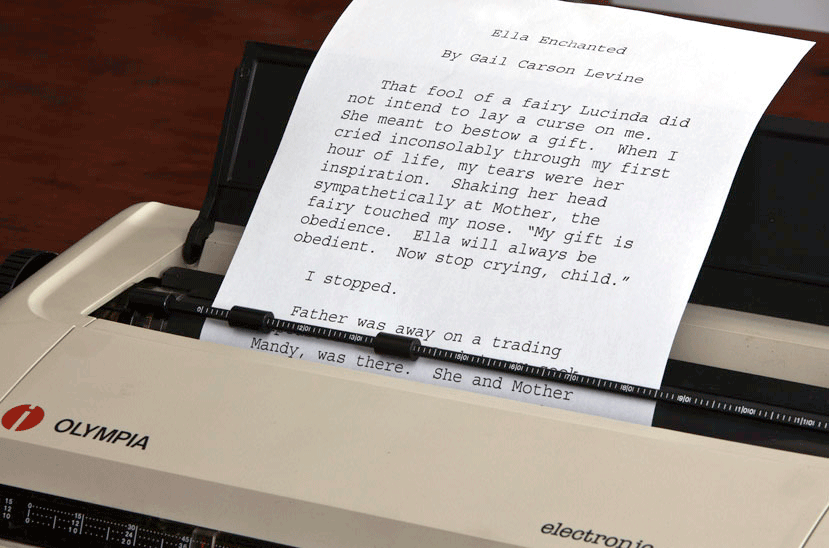 Ella Enchanted
By Gail Carson Levine
That fool of a fairy Lucinda did
not intend to lay a curse on me.
She meant to bestow a gift. When I
cried inconsolably through my first
hour of life, my tears were her
inspiration. Shaking her head
sympathetically at Mother, the
fairy touched my nose. “My gift is
obedience. Ella will always be
obedient. Now stop crying, child.”
I stopped.
Father was away on a trading
Mandy, was there. She and Mother
OLYMPIA
electronic